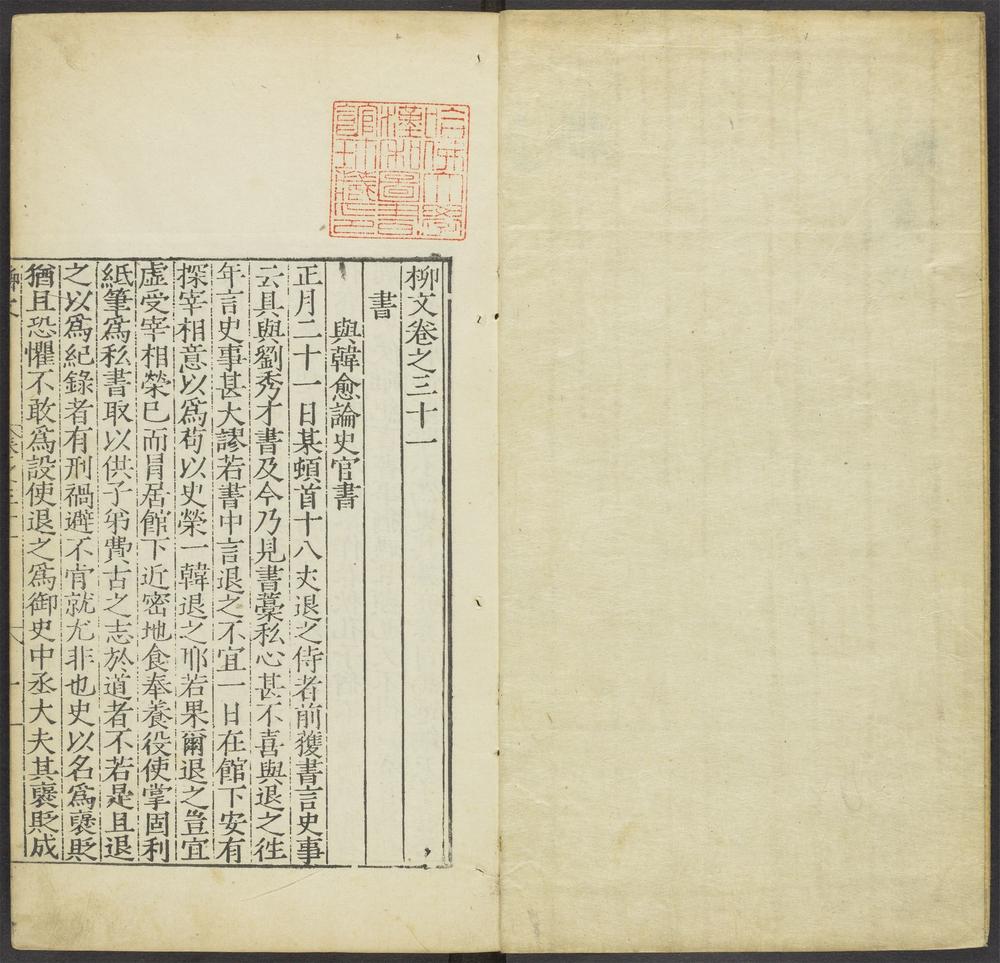 柳文卷之三十一
書
與韓愈論史官書
正月二十一日某頓首十八丈退之侍者前獲書言史事
云具與劉秀才書及今乃見書藳私心甚不喜與退之徃
年言史事甚大謬若書中言退之不宜一日在館下安有
探宰相意以爲苟以史榮一韓退之耶若果爾退之豈宜
虛受宰相榮已而冐居館下近密地食奉養役使掌固利
紙筆爲私書取以供子弟費古之志於道者不若是且退
之以爲紀錄者有刑禍避不肯就尤非也史以名爲襃貶
猶且恐懼不敢爲設使退之爲御史中丞大夫其襃貶成
哈佛大學
漢和圖書
館珍藏印